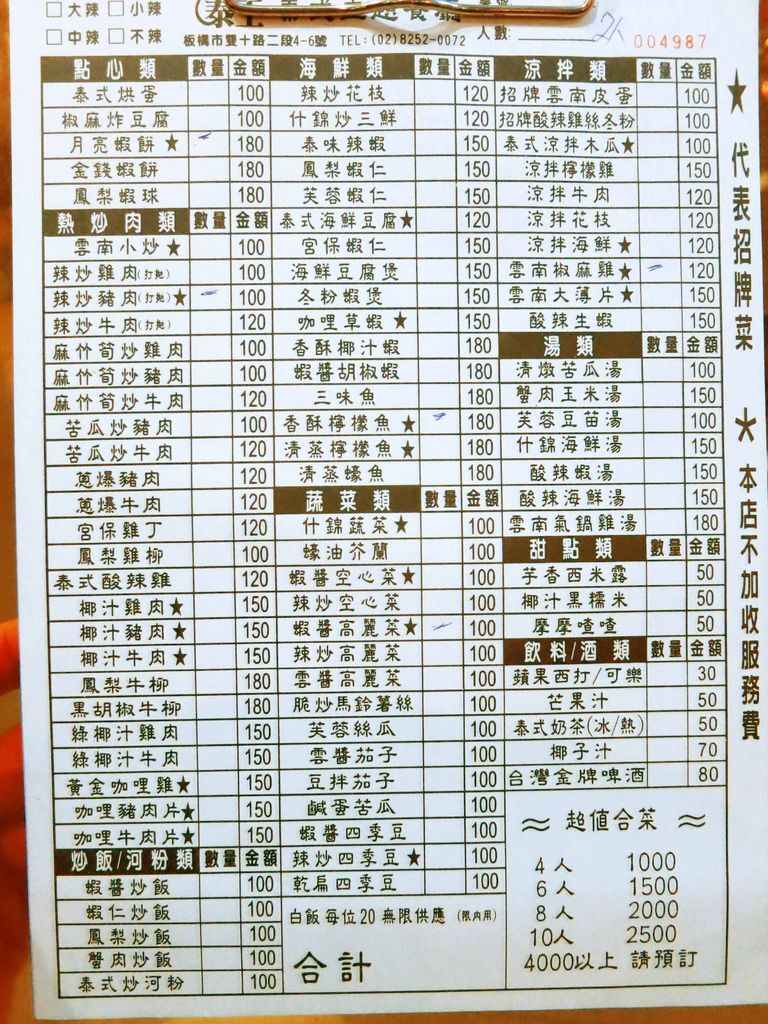 □大辣 □小辣
□中辣 □不辣
板橋市雙十路二段4-6號 TEL:(02)8252-0072 人數: 004987
點心類 數量 金額
泰式烘蛋 100
椒麻炸豆腐 100
月亮蝦餅★ 180
金錢蝦餅 180
鳳梨蝦球 180
熱炒肉類 數量 金額
雲南小炒★ 100
辣炒雞肉(打拋) 100
辣炒豬肉(打拋)★ 100
辣炒牛肉(打拋) 120
麻竹筍炒雞肉 100
麻竹筍炒豬肉 100
麻竹筍炒牛肉 120
苦瓜炒豬肉 100
苦瓜炒牛肉 120
蔥爆豬肉 120
蔥爆牛肉 120
宮保雞丁 120
鳳梨雞柳 100
泰式酸辣雞 120
椰汁雞肉★ 150
椰汁豬肉★ 150
椰汁牛肉★ 150
鳳梨牛柳 180
黑胡椒牛柳 180
綠椰汁雞肉 150
綠椰汁牛肉 150
黃金咖哩雞★ 150
咖哩豬肉片★ 150
咖哩牛肉片★ 150
炒飯/河粉類 數量 金額
蝦醬炒飯 100
蝦仁炒飯 100
鳳梨炒飯 100
蟹肉炒飯 100
泰式炒河粉 100
海鮮類 數量 金額
辣炒花枝 120
什錦炒三鮮 120
泰味辣蝦 150
鳳梨蝦仁 150
芙蓉蝦仁 150
泰式海鮮豆腐★ 120
宮保蝦仁 150
海鮮豆腐煲 150
冬粉蝦煲 150
咖哩草蝦★ 150
香酥椰汁蝦 180
蝦醬胡椒蝦 180
三味魚 180
香酥檸檬魚★ 180
清蒸檸檬魚★ 180
清蒸蠔魚 180
蔬菜類 數量 金額
什錦蔬菜★ 100
蠔油芥蘭 100
蝦醬空心菜★ 100
辣炒空心菜 100
蝦醬高麗菜★ 100
辣炒高麗菜 100
雲醬高麗菜 100
脆炒馬鈴薯絲 100
芙蓉絲瓜 100
雲醬茄子 100
豆拌茄子 100
鹹蛋苦瓜 100
蝦醬四季豆 100
辣炒四季豆★ 100
乾扁四季豆 100
白飯每位20無限供應(限內用)
合計
涼拌類 數量 金額
招牌雲南皮蛋 100
招牌酸辣雞絲冬粉 100
泰式涼拌木瓜★ 100
涼拌檸檬雞 150
涼拌牛肉 120
涼拌花枝 120
涼拌海鮮★ 120
雲南椒麻雞★ 120
雲南大薄片★ 150
酸辣生蝦 150
湯類 數量 金額
清燉苦瓜湯 100
蟹肉玉米湯 150
芙蓉豆苗湯 100
什錦海鮮湯 150
酸辣蝦湯 150
酸辣海鮮湯 150
雲南氣鍋雞湯 180
甜點類 數量 金額
芋香西米露 50
椰汁黑糯米 50
摩摩喳喳 50
飲料/酒類 數量 金額
蘋果西打/可樂 30
芒果汁 50
泰式奶茶(冰/熱) 50
椰子汁 70
台灣金牌啤酒 80
≈ 超值合菜 ≈
4人 1000
6人 1500
8人 2000
10人 2500
4000以上 請預訂
★代表招牌菜 ★本店不加收服務費